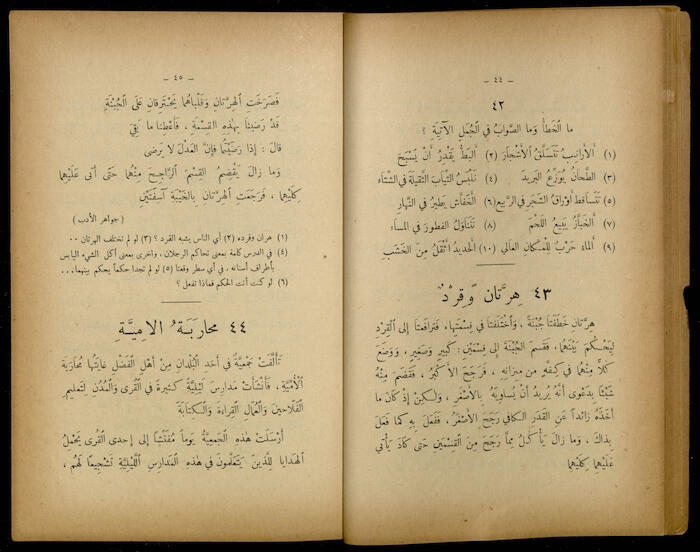 – ٤٤ –
٤٢
ما ٱلْخَطَأُ وَما ٱلصَّوابُ فِي ٱلْجُمَلِ ٱلْآتِيَةِ ؟
(١) ٱلأَرانِبُ تَتَسَلَّقُ ٱلْأَشْجارَ (٢) ٱلبَطُّ يَقْدِرُ أَنْ يَسْبَحَ
(٣) ٱلطَّحَّانُ يُوَزِّعُ ٱلبَرِيدَ (٤) نَلْبَسُ ٱلثِّيابَ ٱلثَّقِيلَةَ فِي ٱلشِّتَاء
(٥) تَتَساقَطُ أَوْراقُ ٱلشَّجَرِ فِي ٱلرَّبِيعِ (٦) ٱلْخُفَّاشُ يَطِيرُ فِي ٱلنَّهارِ
(٧) ٱلْخَبَّازُ يَبِيعُ ٱللَّحْمَ (٨) نَتَناوَلُ ٱلفَطُورَ فِي ٱلمَساءِ
(٩) ٱلْماءُ يَجْرِي لِلْمَكانِ ٱلعالِي (١٠) ٱلْحَدِيدُ أَثْقَلُ مِنَ ٱلْخَشَبِ
٤٣ هِرَّتانِ وَقِرْدٌ
هِرَّتانِ خَطَفَتا جُبْنَةً ، وَٱخْتَلَفَتا فِي قِسْمَتِها ، فَتَرافَعَتا إِلى ٱلْقِرْدِ
لِيَحْكُمَ بَيْنَهُما ، فَقَسَمَ ٱلْجُبْنَةَ إِلى قِسْمَيْنِ : كَبِيرٍ وَصَغِيرٍ ، وَوَضَعَ
كُلاًّ مِنْهُما فِي كِفَّةٍ مِن مِيزانِهِ ، فَرَجَحَ ٱلْأَكْبَرُ ، فَقَضَمَ مِنْهُ
شَيْئًا بِدَعْوى أَنَّهُ يُرِيدُ أَنْ يُساوِيَهُ بِٱلْأَصْغَرِ ، وَلٰكِنْ إِذْ كانَ ما
أَخَذَهُ زائِداً عَنِ ٱلقَدْرِ ٱلكافي رَجَحَ ٱلْأَصْغَرُ ، فَفَعَلَ بِهِ كما فَعَلَ
بِذاكَ ، وَما زالَ يَأْكُلُ مِمَّا رَجَحَ مِنَ ٱلْقِسْمَيْنِ حَتَّى كادَ يَأْتِي
عَلَيْهِما كِلَيْهِما
– ٤٥ –
فَصَرَخَتِ ٱلْهِرَّتانِ وَقَلْباهُما يَحْتَرِقانِ عَلَى ٱلْجُبْنَةِ
قَدْ رَضِينا بِهٰذِهِ ٱلقِسْمَةِ ، فَأَعْطِنا ما بَقِيَ
قالَ : إِذا رَضِيتُما فَإِنَّ ٱلعَدْلَ لا يَرضى
وَما زالَ يَقْضِمُ ٱلقِسْمَ ٱلرَّاجِحَ مِنْهُما حَتَّى أَتى عَلَيْهِما
كِلَيْهِما ، فَرَجَعَتِ ٱلْهِرَّتانِ بِالْخَيْبَةِ آسِفَتَيْنِ
(جواهر الأدب)
(١) هرتان وقرده (٢) أي الناس يشبه القرد ؟ (٣) لو لم تختلف الهرتان ..
(٤) في الدرس كلمة بمعنى تحاكم الرجلان ، واخرى بمعنى أكل الشيء اليابس
بأطراف أسنانه . في أي سطر وقعتا (٥) لو لم تجدا حكماً يحكم بينهما...
(٦) لو كنت أنت الحكم فماذا تفعل ؟
٤٤ محارَبَةُ الاميَّةِ
تَأَلَّفَتْ جَمْعِيَّةٌ فِي أَحَدِ ٱلبُلْدانِ مِنْ أَهْلِ ٱلْفَضْلِ غايَتُها مُحارَبَةُ
ٱلْأُمِّيَّةِ ، فَأَنْشَأَتْ مَدارِسَ لَيْلِيَّةً كَثِيرَةً فِي ٱلْقُرَى وَٱلْمُدُنِ لِتَعْلِيمِ
ٱلْفَلَّاحِينَ وَٱلْعُمَّالِ ٱلْقِراءَةَ وَٱلْكِتابَةَ
أَرْسَلَتْ هٰذِهِ ٱلْجَمْعِيَّةُ يَوْماً مُفَتِّشًا إِلى إِحْدى ٱلقُرى يَحْمِلُ
ٱلْهَدايا لِلَّذِينَ يَتَعَلَّمُونَ فِي هٰذِهِ ٱلْمَدارِسِ ٱللَّيْلِيَّةِ تَشْجِيعًا لَهُمْ ،